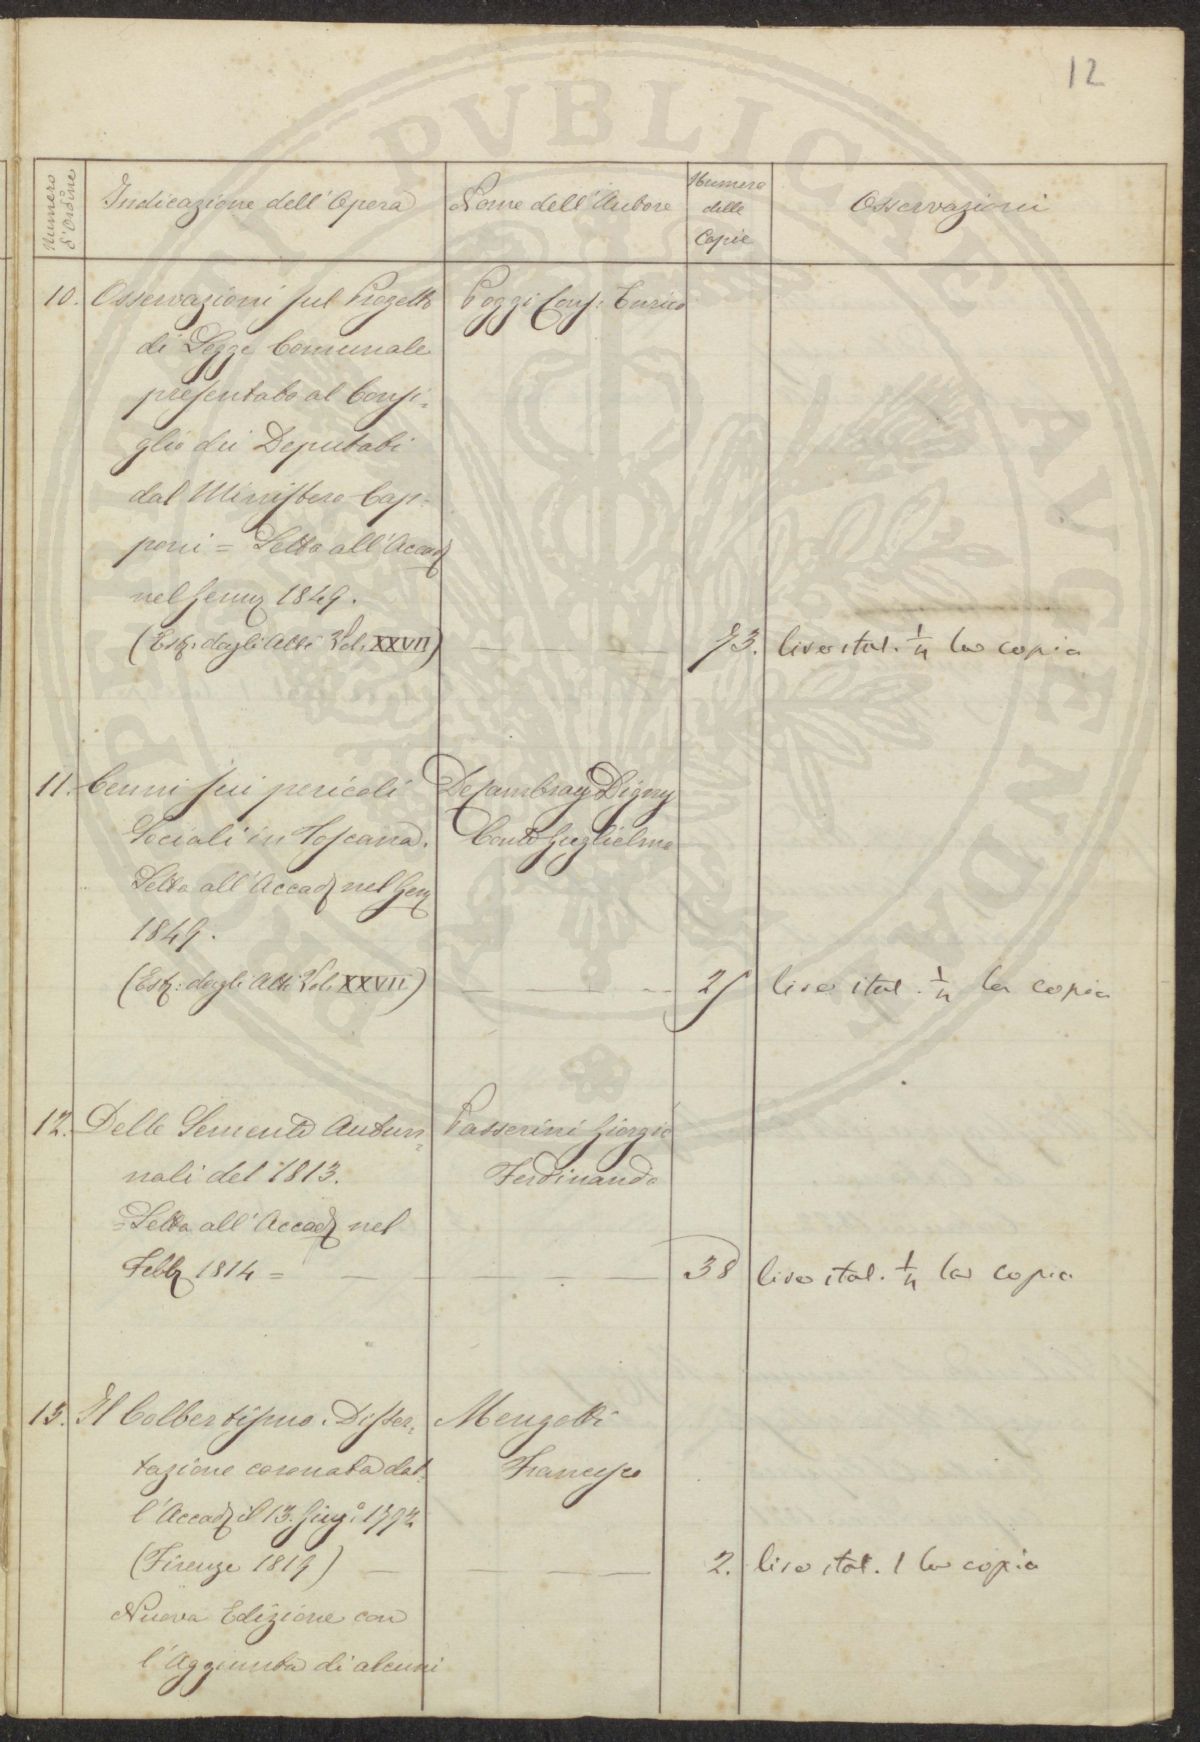 12
Numero d'Ordine
Indicazione dell'Opera
Nome dell'Autore
Numero delle Copie
Osservazioni
10. Osservazioni sul Progetto
di Legge Comunale
presentato al Consi-
glio dei Deputati
dal Ministero Cap-
poni = Letta all'Accad
nel Genn 1849.
(Estr: dagli Atti Vol. XXVII)
Poggi Cons: Enrico
73.
lire ital. 1/4 la copia
11. Cenni sui pericoli
Sociali in Toscana.
Letta all'Accad nel Gen
1849.
(Estr: dagli Atti Vol. XXVII)
De Cambray Digny
Conte Guglielmo
25
lire ital. 1/4 la copia
12. Delle Semente Autun-
nali del 1813.
= Letta all'Accad nel
Febb 1814 =
Passerini Giorgio
Ferdinando
38
lire ital. 1/4 la copia
13. Il Colbertismo. Disser-
tazione coronata dal-
l'Accad il 13. Giug° 1792
(Firenze 1819)
Nuova Edizione con
l'Aggiunta di alcuni
Mengotti
Francesco
2.
lire ital. 1 la copia
PVBLICAE